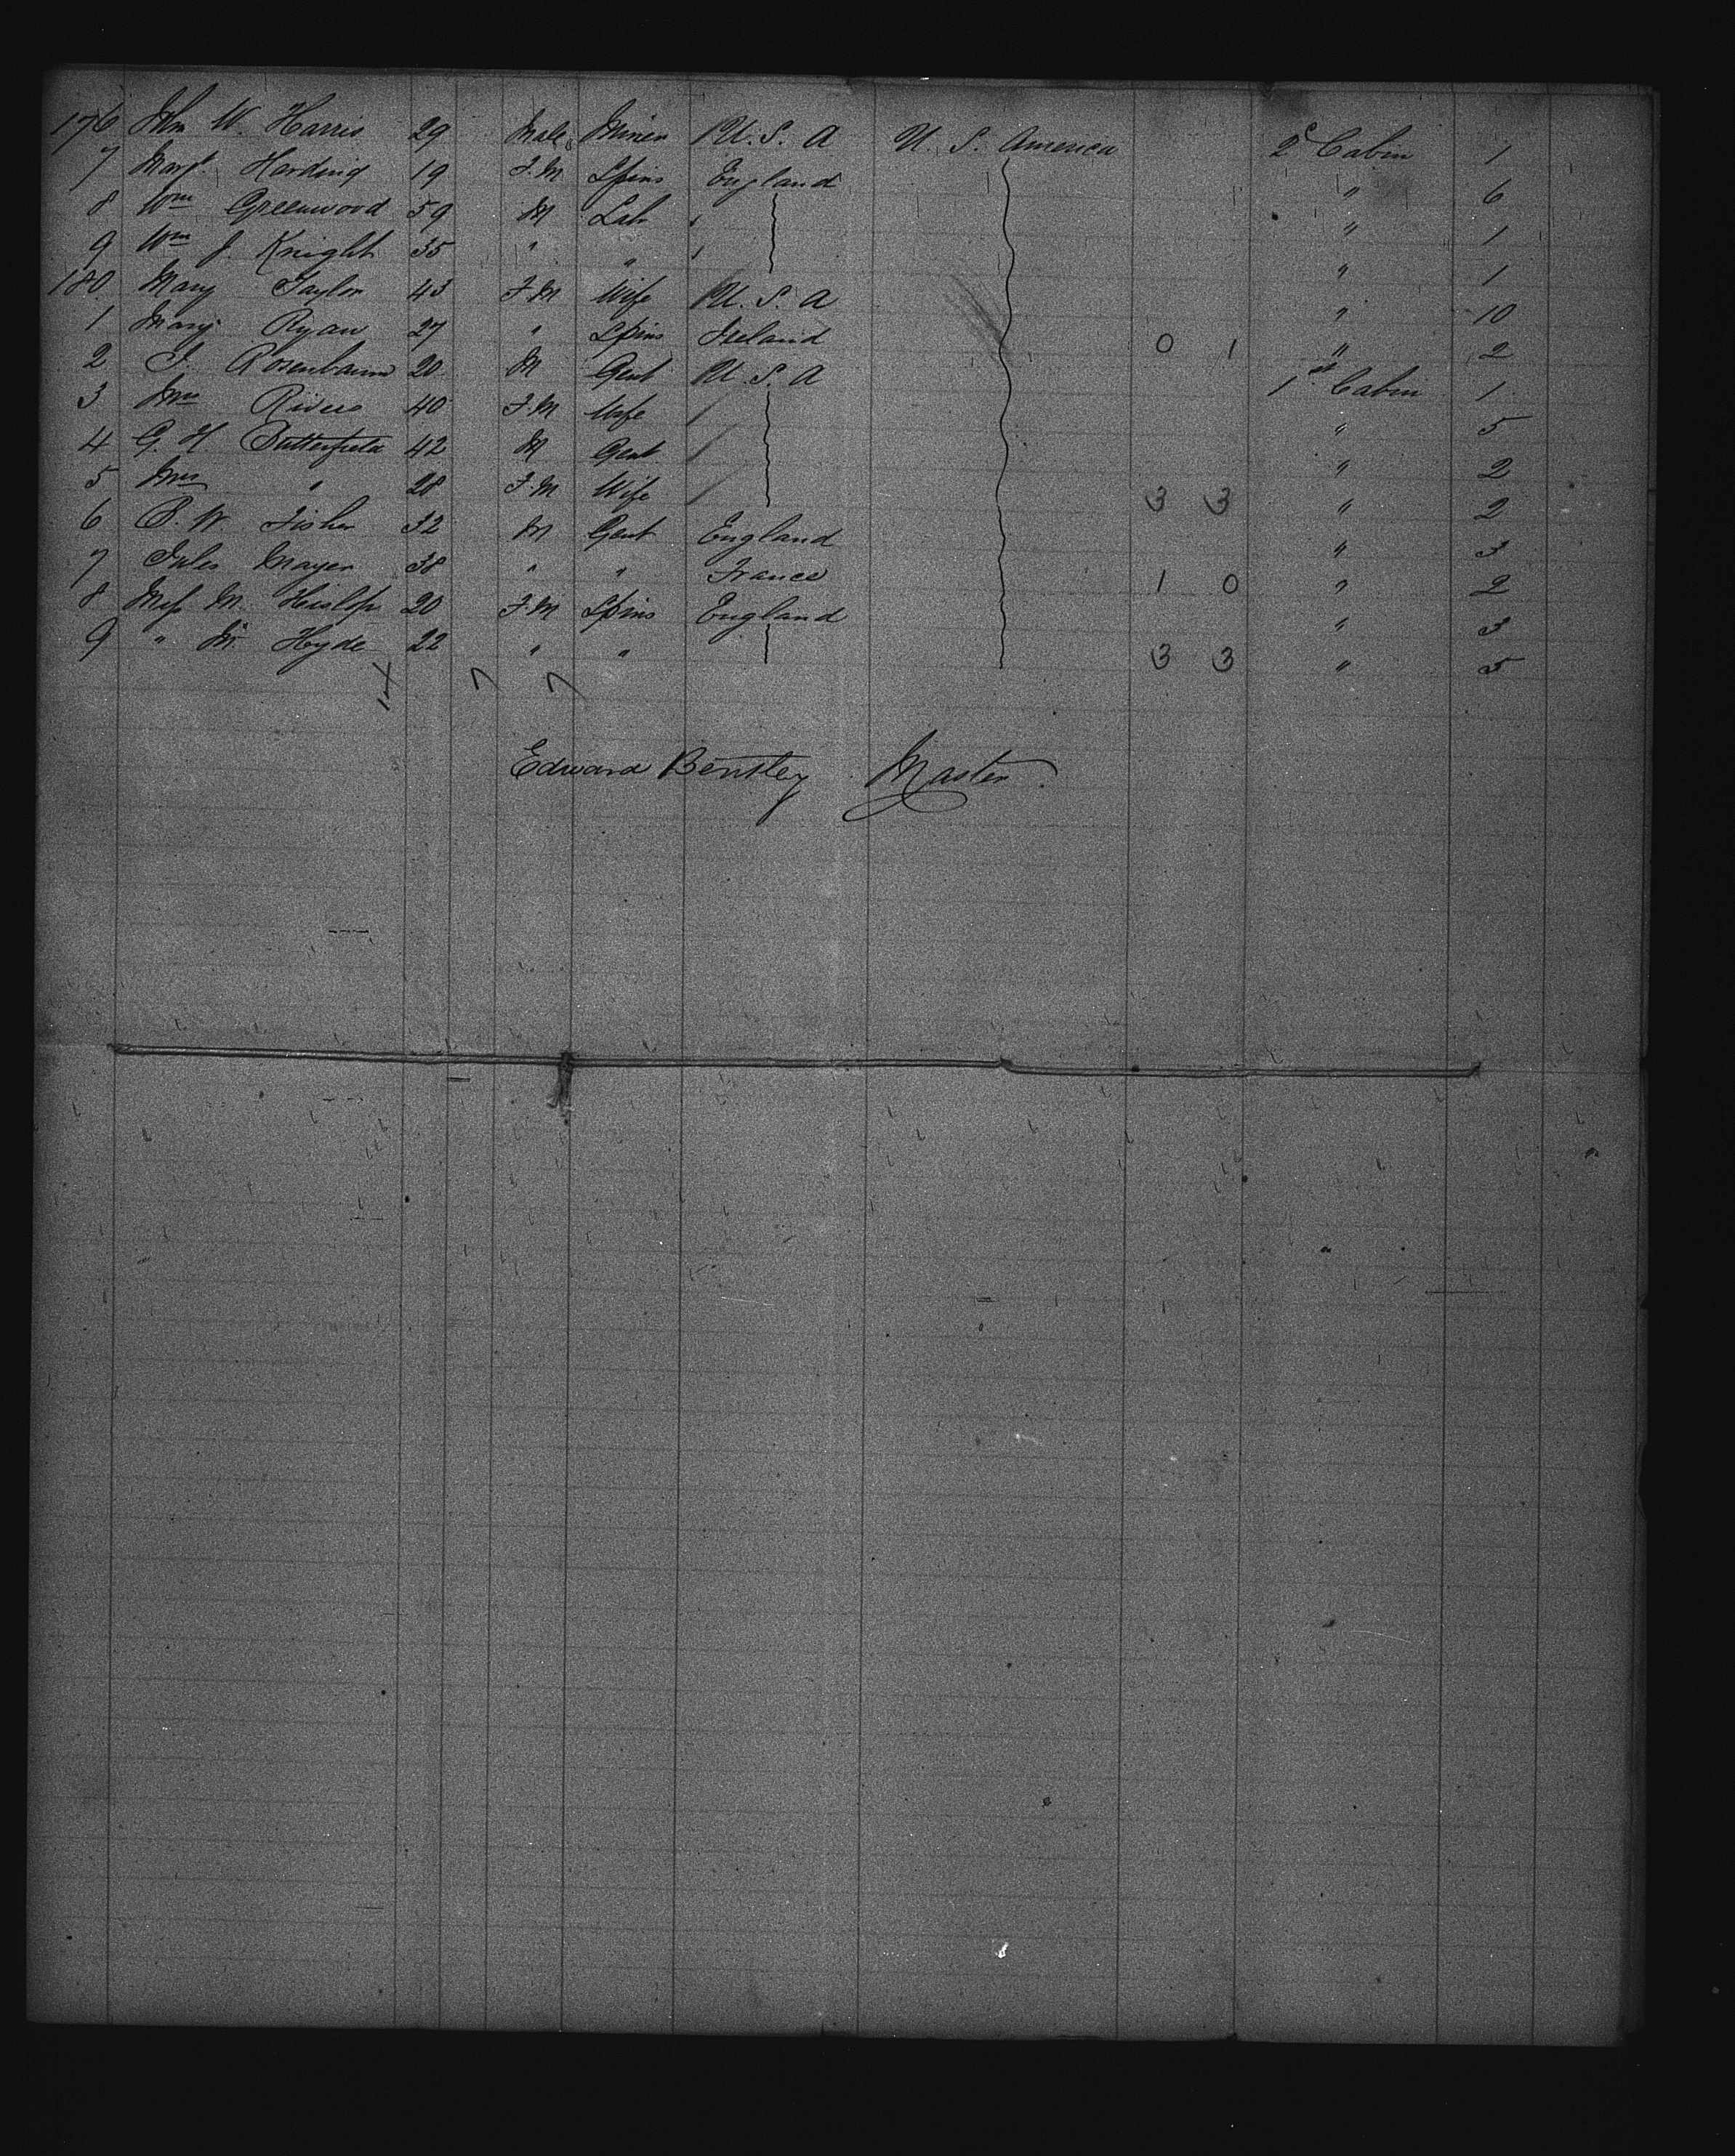 176 Jhn W. Harris 29 Male Miner U. S. A U. S. America 2ᵈ Cabin 1
7 Margt. Harding 19 F.M Spins England " 6
8 Wm Greenwood 59 M Lab " 1
9 Wm J. Knight 35 " " " 1
180 Mary Taylor 43 F.M Wife U. S. A " 10
1 Mary Ryan 27 " Spins Ireland 0 1 " 2
2 J. Rosenbaum 20 M Gent U. S. A 1st Cabin 1
3 Mrs Rivers 40 F.M Wife " 5
4 G. H Butterfield 42 M Gent " 2
5 Mrs " 28 F.M Wife 3 3 " 2
6 P. W. Fisher 32 M Gent England " 3
7 Jules Mayer 38 " " France 1 0 " 2
8 Miss M. Hislop 20 F.M Spins England " 3
9 " M. Hyde 22 " " 3 3 " 5
14 7 7
Edward Bentley Master